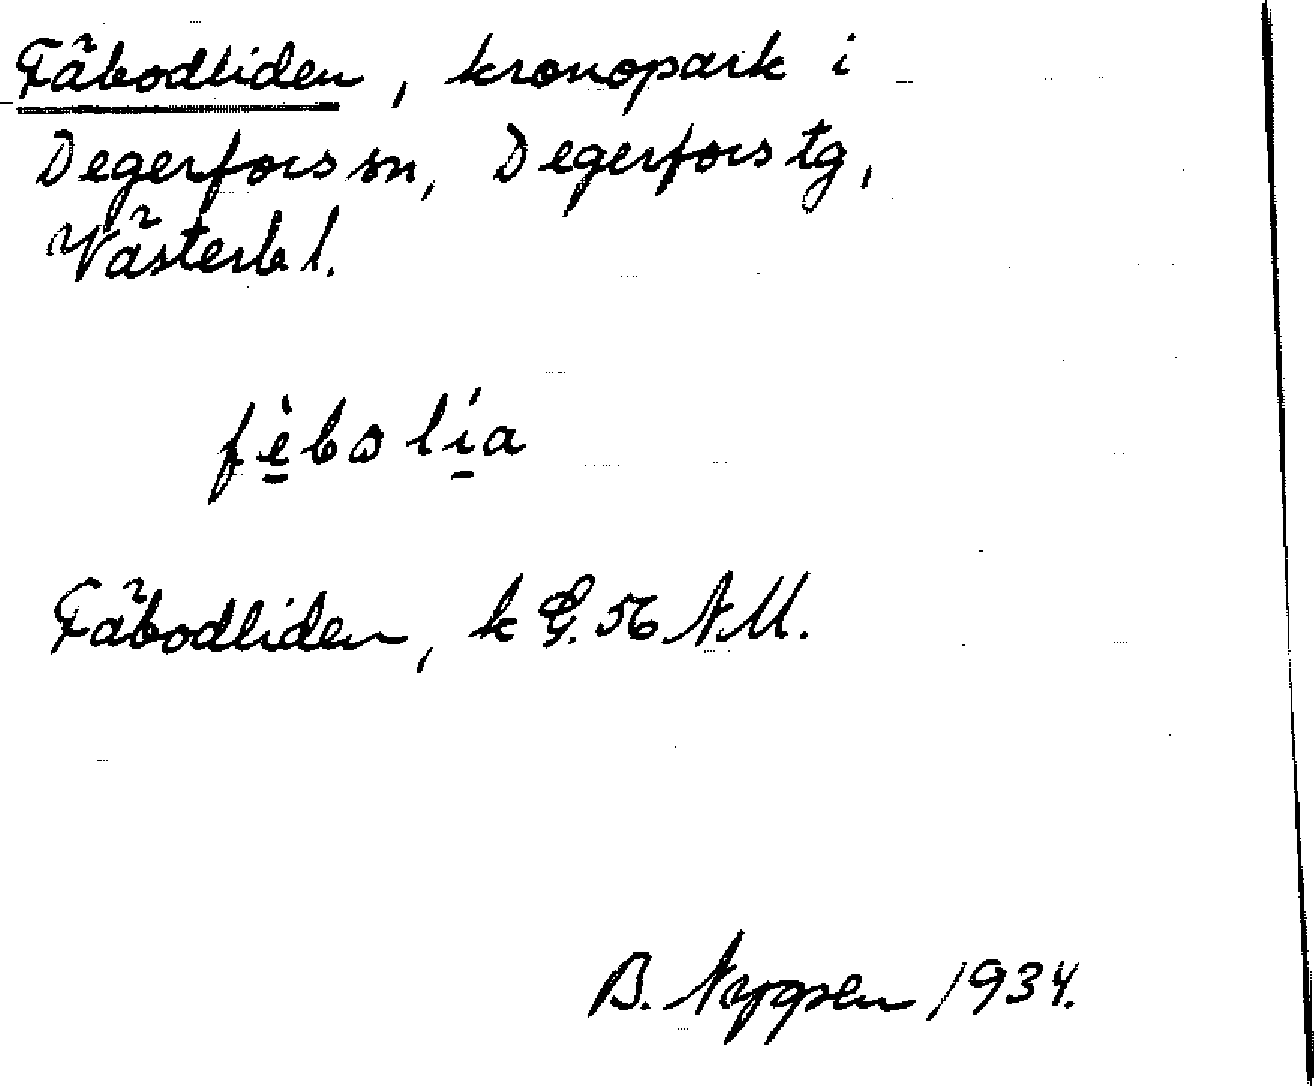 Fäbodliden, kronopark i
Degerfors sn, Degerfors tg,
Västerb l.
fèbolía
Fäbodliden, k G. 56 NM.
B. 1934.